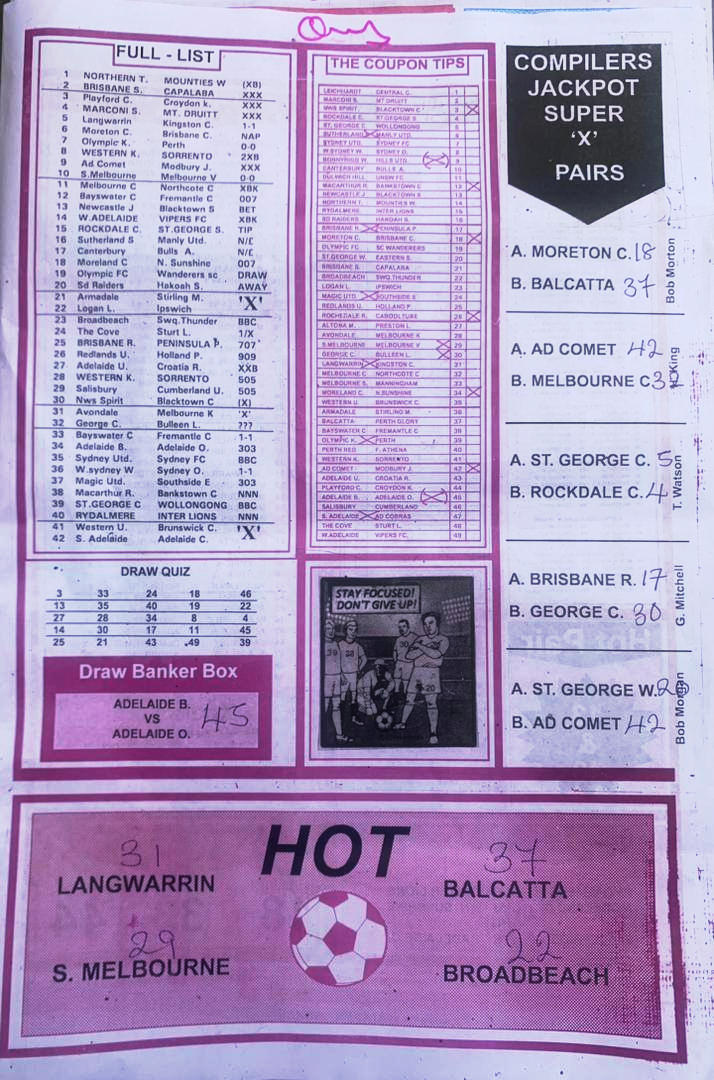 FULL - LIST
1 NORTHERN T. MOUNTIES W (XB)
2 BRISBANE S. CAPALABA XXX
3 Playford C. Croydon k. XXX
4 MARCONI S. MT. DRUITT XXX
5 Langwarrin Kingston C. 1-1
6 Moreton C. Brisbane C. NAP
7 Olympic K. Perth 0-0
8 WESTERN K. SORRENTO 2XB
9 Ad Comet Modbury J. XXX
10 S.Melbourne Melbourne V 0-0
11 Melbourne C Northcote C XBK
12 Bayswater C Fremantle C 007
13 Newcastle J Blacktown S BET
14 W.ADELAIDE VIPERS FC XBK
15 ROCKDALE C. ST.GEORGE S. TIP
16 Sutherland S Manly Utd. N/E
17 Canterbury Bulls A. N/E
18 Moreland C N. Sunshine 007
19 Olympic FC Wanderers sc DRAW
20 Sd Raiders Hakoah S. AWAY
21 Armadale Stirling M. 'X'
22 Logan L. Ipswich
23 Broadbeach Swq.Thunder BBC
24 The Cove Sturt L. 1/X
25 BRISBANE R. PENINSULA P. 707
26 Redlands U. Holland P. 909
27 Adelaide U. Croatia R. XXB
28 WESTERN K. SORRENTO 505
29 Salisbury Cumberland U. 505
30 Nws Spirit Blacktown C (X)
31 Avondale Melbourne K 'X'
32 George C. Bulleen L. ???
33 Bayswater C Fremantle C 1-1
34 Adelaide B. Adelaide O. 303
35 Sydney Utd. Sydney FC BBC
36 W.sydney W Sydney O. 1-1
37 Magic Utd. Southside E 303
38 Macarthur R. Bankstown C NNN
39 ST.GEORGE C WOLLONGONG BBC
40 RYDALMERE INTER LIONS NNN
41 Western U. Brunswick C. 'X'
42 S. Adelaide Adelaide C.
DRAW QUIZ
3 33 24 18 46
13 35 40 19 22
27 28 34 8 4
14 30 17 11 45
25 21 43 49 39
Draw Banker Box
ADELAIDE B.
VS 45
ADELAIDE O.
THE COUPON TIPS
LEICHHARDT CENTRAL C. 1
MARCONI S. MT DRUITT 2
NWS SPIRIT BLACKTOWN C 3
ROCKDALE C. ST.GEORGE S 4
ST. GEORGE C. WOLLONGONG 5
SUTHERLAND S MANLY UTD. 6
SYDNEY UTD. SYDNEY FC 7
W.SYDNEY W. SYDNEY O. 8
BONNYRIGG W. HILLS UTD. 9
CANTERBURY BULLS A. 10
DULWICH HILL UNSW FC 11
MACARTHUR R. BANKSTOWN C 12
NEWCASTLE J. BLACKTOWN S 13
NORTHERN T. MOUNTIES W. 14
RYDALMERE INTER LIONS 15
SD RAIDERS HAKOAH S. 16
BRISBANE R. PENINSULA P. 17
MORETON C. BRISBANE C. 18
OLYMPIC FC SC WANDERERS 19
ST.GEORGE W. EASTERN S. 20
BRISBANE S. CAPALABA 21
BROADBEACH SWQ.THUNDER 22
LOGAN L. IPSWICH 23
MAGIC UTD. SOUTHSIDE E 24
REDLANDS U. HOLLAND P. 25
ROCHEDALE R. CABOOLTURE 26
ALTONA M. PRESTON L. 27
AVONDALE MELBOURNE K 28
S.MELBOURNE MELBOURNE V 29
GEORGE C. BULLEEN L. 30
LANGWARRIN KINGSTON C. 31
MELBOURNE C NORTHCOTE C 32
MELBOURNE S. MANNINGHAM 33
MORELAND C. N.SUNSHINE 34
WESTERN U. BRUNSWICK C. 35
ARMADALE STIRLING M. 36
BALCATTA PERTH GLORY 37
BAYSWATER C FREMANTLE C 38
OLYMPIC K. PERTH 39
PERTH RED F. ATHENA 40
WESTERN K. SORRENTO 41
AD COMET MODBURY J. 42
ADELAIDE U. CROATIA R. 43
PLAYFORD C. CROYDON K. 44
ADELAIDE B. ADELAIDE O. 45
SALISBURY CUMBERLAND 46
S. ADELAIDE AD COBRAS 47
THE COVE STURT L. 48
W.ADELAIDE VIPERS FC. 49
STAY FOCUSED!
DON'T GIVE UP!
39 38 30 20
COMPILERS
JACKPOT
SUPER
'X'
PAIRS
A. MORETON C. 18
B. BALCATTA 37
Bob Morton
A. AD COMET 42
B. MELBOURNE C
King
A. ST. GEORGE C. 5
B. ROCKDALE C. 4
T. Watson
A. BRISBANE R. 17
B. GEORGE C. 30
G. Mitchell
A. ST. GEORGE W. 20
B. AD COMET 42
Bob Morgan
HOT
31
LANGWARRIN
37
BALCATTA
29
S. MELBOURNE
22
BROADBEACH